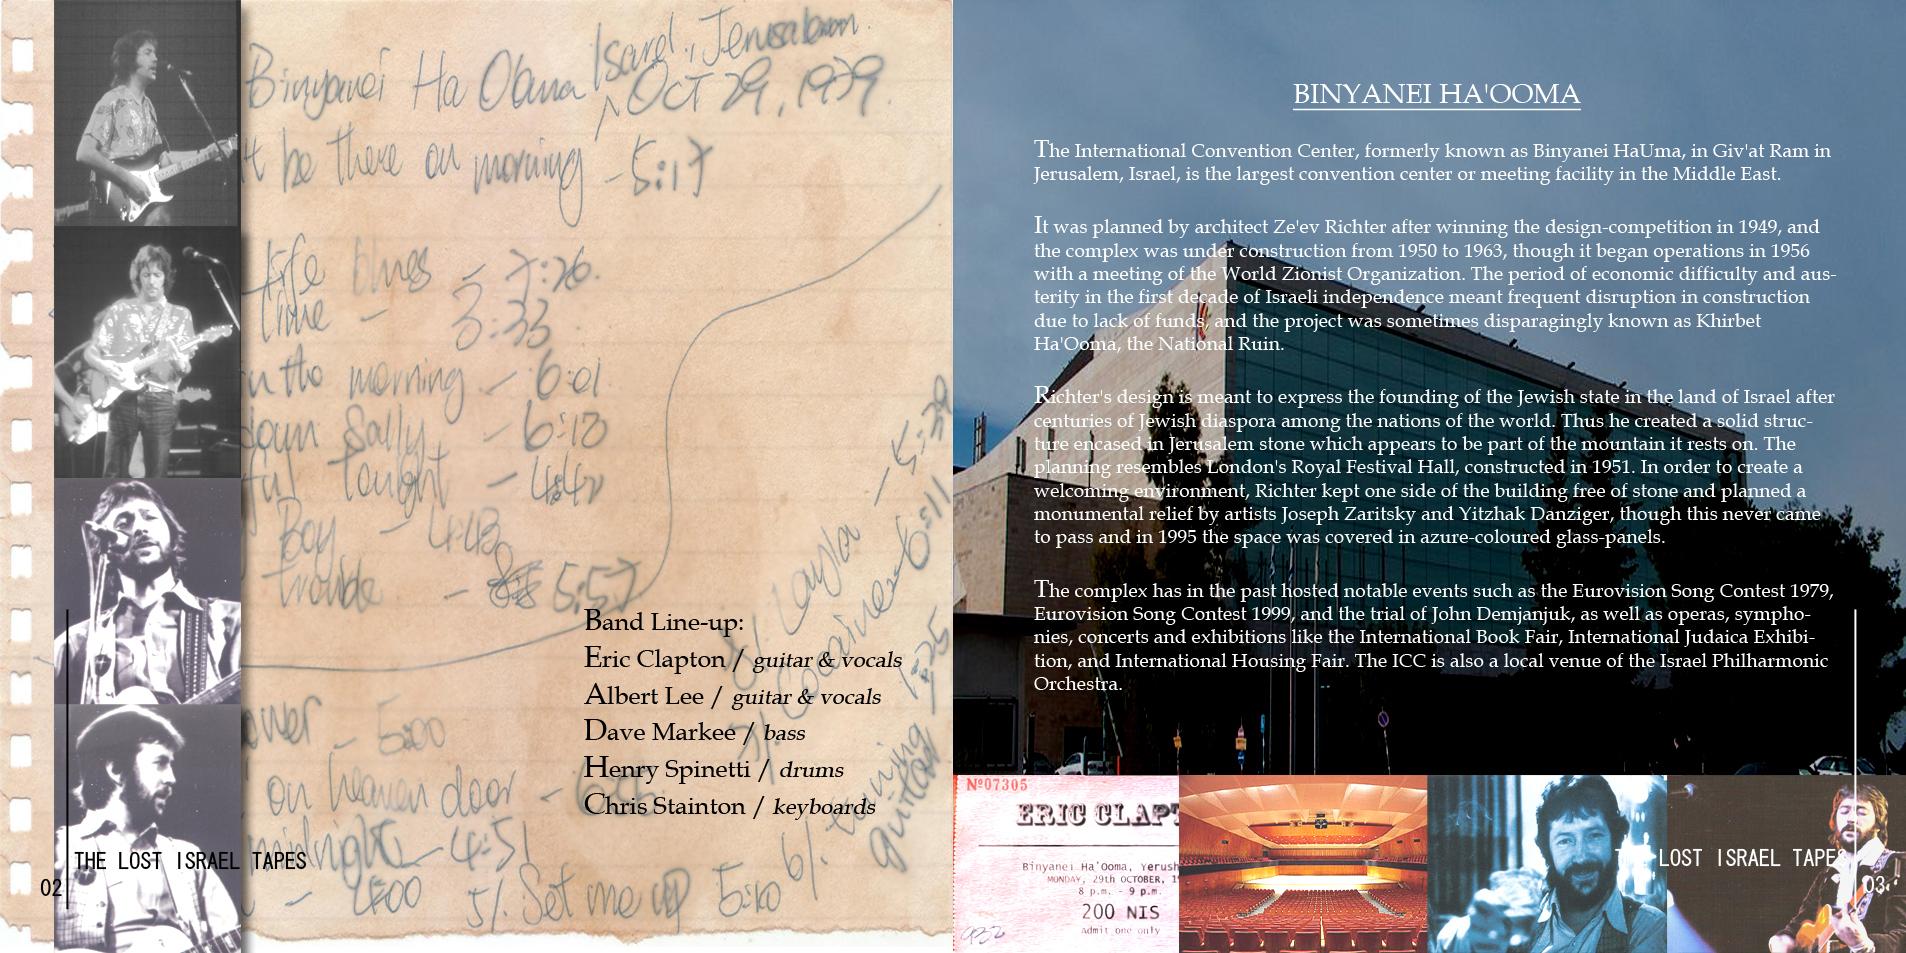 Binyanei Ha Ooma Isarel, Jerusalem.
OCT 29, 1979.
t be there on morning - 5:17
life blues - 7:26.
time - 3:33.
in the morning - 6:01
down Sally - 6:18
ful tonight - 4:42
Boy - 4:48
trouble - 5:57
Layla - 5:39
Cocaine - 6:11
ower - 5:00
on heaven door -
midnight - 4:51
- 4:00
5/. Set me up 5:10
6/.
Band Line-up:
Eric Clapton / guitar & vocals
Albert Lee / guitar & vocals
Dave Markee / bass
Henry Spinetti / drums
Chris Stainton / keyboards
THE LOST ISRAEL TAPES
02
BINYANEI HA'OOMA
The International Convention Center, formerly known as Binyanei HaUma, in Giv'at Ram in
Jerusalem, Israel, is the largest convention center or meeting facility in the Middle East.
It was planned by architect Ze'ev Richter after winning the design-competition in 1949, and
the complex was under construction from 1950 to 1963, though it began operations in 1956
with a meeting of the World Zionist Organization. The period of economic difficulty and aus-
terity in the first decade of Israeli independence meant frequent disruption in construction
due to lack of funds, and the project was sometimes disparagingly known as Khirbet
Ha'Ooma, the National Ruin.
Richter's design is meant to express the founding of the Jewish state in the land of Israel after
centuries of Jewish diaspora among the nations of the world. Thus he created a solid struc-
ture encased in Jerusalem stone which appears to be part of the mountain it rests on. The
planning resembles London's Royal Festival Hall, constructed in 1951. In order to create a
welcoming environment, Richter kept one side of the building free of stone and planned a
monumental relief by artists Joseph Zaritsky and Yitzhak Danziger, though this never came
to pass and in 1995 the space was covered in azure-coloured glass-panels.
The complex has in the past hosted notable events such as the Eurovision Song Contest 1979,
Eurovision Song Contest 1999, and the trial of John Demjanjuk, as well as operas, sympho-
nies, concerts and exhibitions like the International Book Fair, International Judaica Exhibi-
tion, and International Housing Fair. The ICC is also a local venue of the Israel Philharmonic
Orchestra.
Nº07305
ERIC CLAPT
Binyanei Ha'Ooma, Yerush
MONDAY, 29th OCTOBER, 1
8 p.m. - 9 p.m.
200 NIS
Admit one only
932
THE LOST ISRAEL TAPES
03